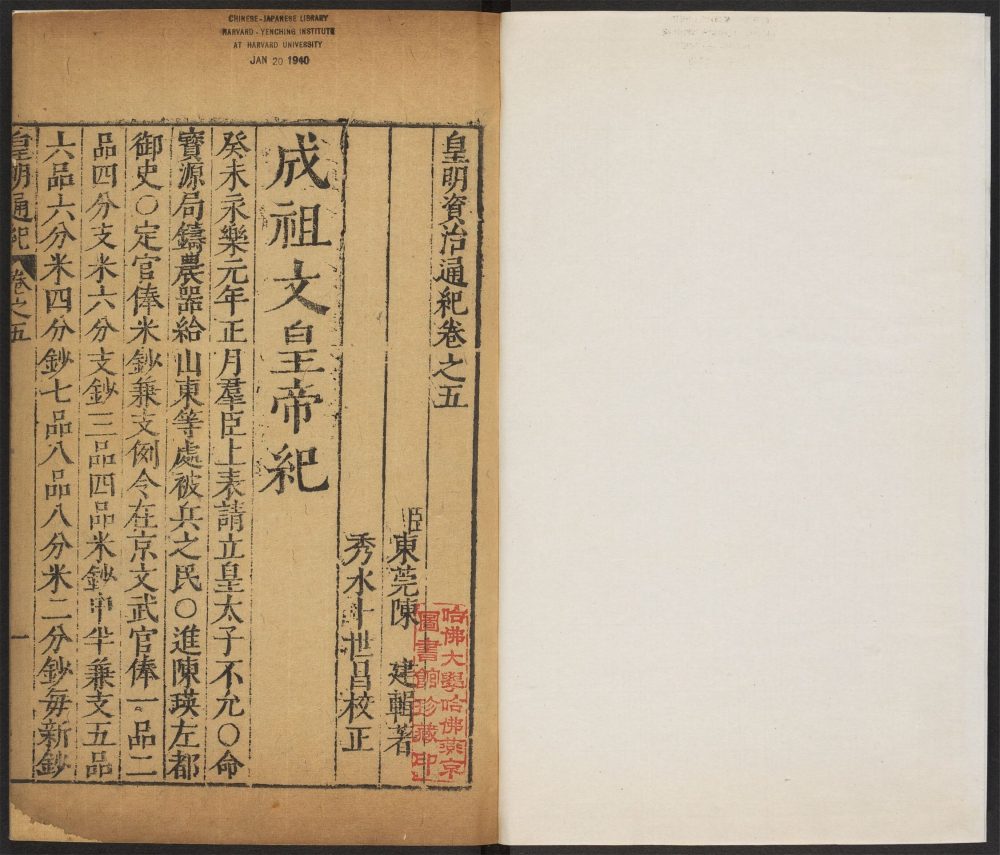 CHINESE-JAPANESE LIBRARY
HARVARD-YENCHING INSTITUTE
AT HARVARD UNIVERSITY
JAN 20 1940
皇明資治通紀卷之五
臣東莞陳 建輯著
秀水卜世昌校正
哈佛大學哈佛燕京
圖書館珍藏印
成祖文皇帝紀
癸未永樂元年正月羣臣上表請立皇太子不允○命
寶源局鑄農器給山東等處被兵之民○進陳瑛左都
御史○定官俸米鈔兼支例令在京文武官俸一品二
品四分支米六分支鈔三品四品米鈔中半兼支五品
六品六分米四分鈔七品八品八分米二分鈔每新鈔
皇明通紀 卷之五 一